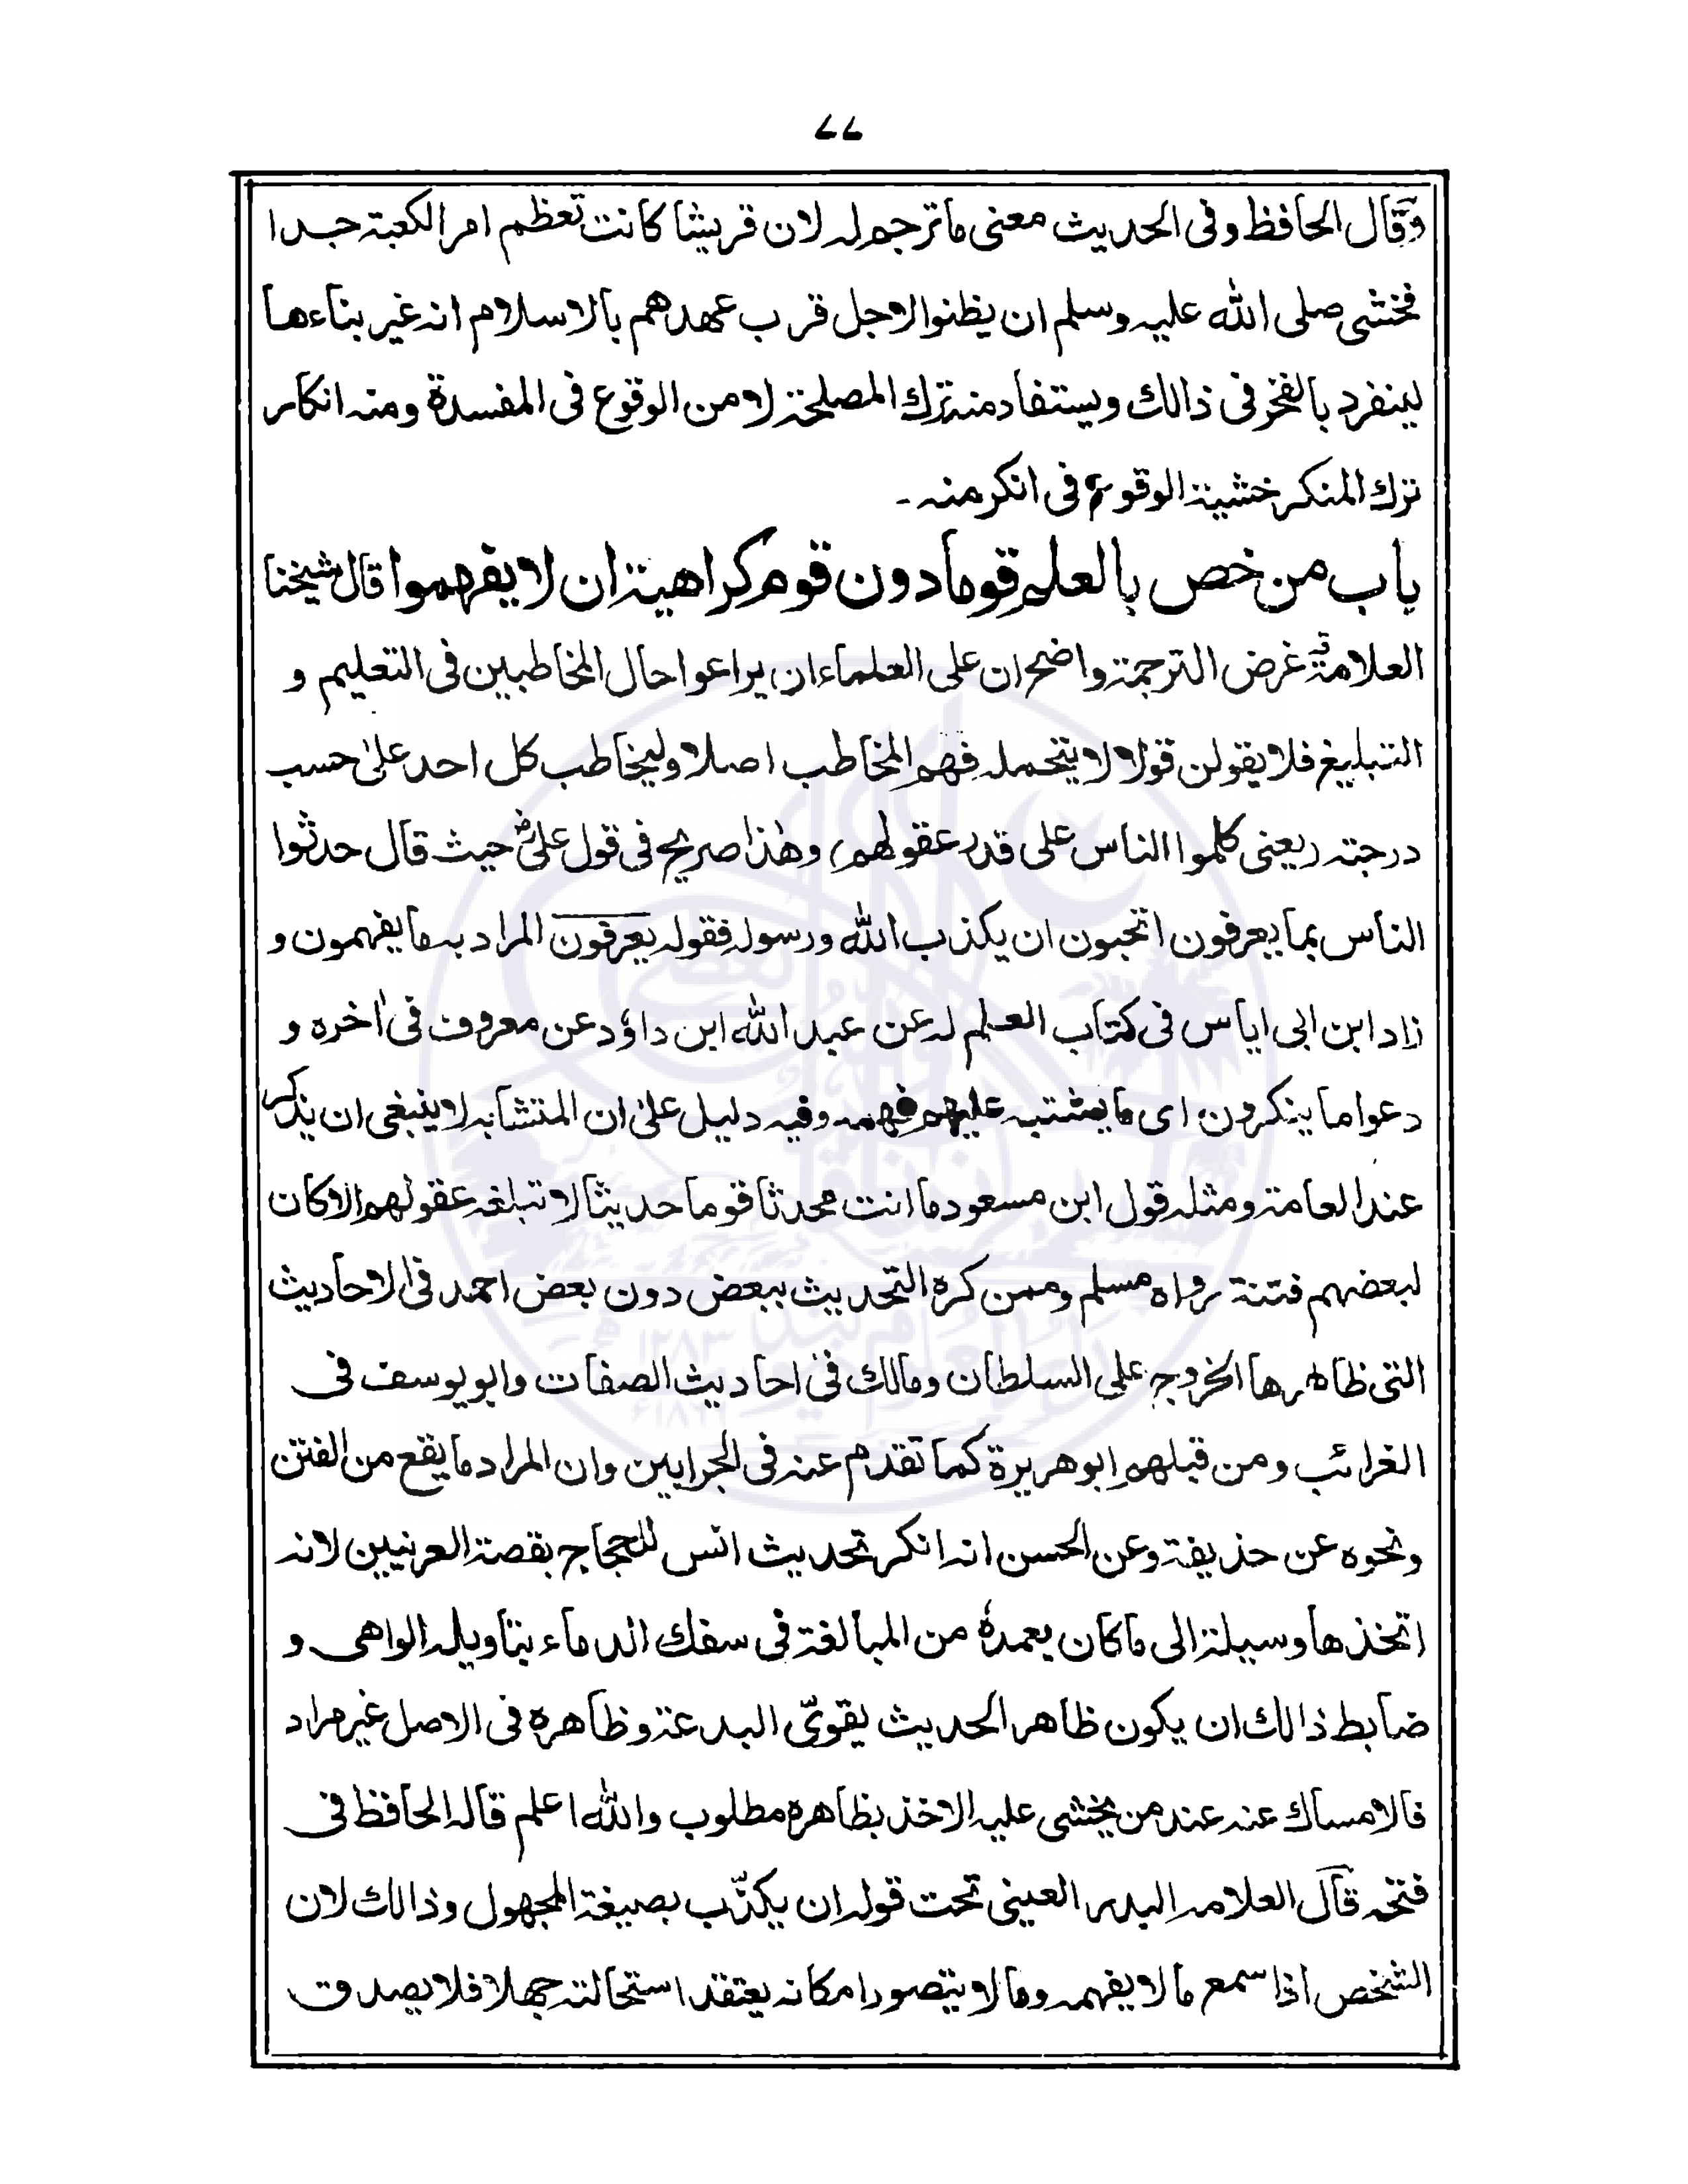 ۷۷
وقال الحافظ وفى الحديث معنى ماترجم له لان قريشا كانت تعظم امر الكعبة جدا
فخشى صلى الله عليه وسلم ان يظنوا لاجل قرب عهدهم بالاسلام انه غير بناءها
لينفرد بالفخر فى ذالك ويستفاد منه ترك المصلحة لامن الوقوع فى المفسدة ومنه انكار
ترك المنكر خشية الوقوع فى انكر منه ۔
باب من خص بالعلم قوما دون قوم كراهية ان لا يفهموا قال شيخنا
العلامة غرض الترجمة واضح ان على العلماء ان يراعوا حال المخاطبين فى التعليم و
التبليغ فلا يقولن قولا لا يتحمله فهم المخاطب اصلا وليخاطب كل احد علىٰ حسب
درجته (يعنى كلموا الناس على قدر عقولهم) وهٰذا صريح فى قول علىؓ حيث قال حدثوا
الناس بما يعرفون اتحبون ان يكذب الله ورسوله فقوله يعرفون المراد به ما يفهمون و
زاد ابن ابى اياس فى كتاب العلم له عن عبد الله ابن داؤد عن معروف فى اٰخره و
دعوا ما ينكرون اى ما يشتبه عليهم فهمه وفيه دليل علىٰ ان المتشابه لا ينبغى ان يذكر
عند العامة ومثله قول ابن مسعود ما انت محدثا قوما حديثا لا تبلغه عقولهم الا كان
لبعضهم فتنة رواه مسلم وممن كره التحديث ببعض دون بعض احمد فى الاحاديث
التى ظاهرها الخروج على السلطان ومالك فى احاديث الصفات وابو يوسف فى
الغرائب ومن قبلهم ابو هريرة كما تقدم عنه فى الجرابين وان المراد ما يقع من الفتن
ونحوه عن حذيفة وعن الحسن انه انكر تحديث انس للحجاج بقصة العرنيين لانه
اتخذها وسيلة الى ما كان يعمدهٗ من المبالغة فى سفك الدماء بتاويله الواهى و
ضابط ذالك ان يكون ظاهر الحديث يقوىّ البدعة وظاهره فى الاصل غير مراد
فالامساك عنه عند من يخشى عليه الاخذ بظاهره مطلوب والله اعلم قاله الحافظ فى
فتحه قال العلامه البدر العينى تحت قوله ان يكذّب بصيغة المجهول وذالك لان
الشخص اذا سمع ما لا يفهمه وما لا يتصور امكانه يعتقد استحالته جهلا فلا يصدق